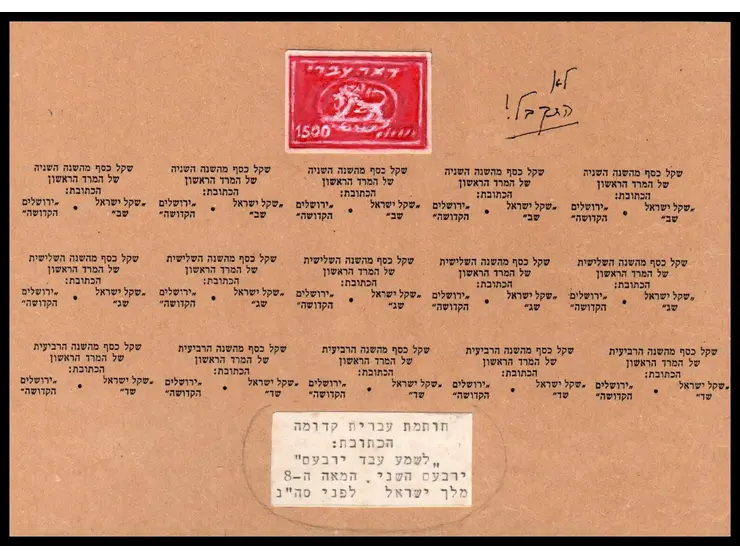 דאר עברי
1500
לא
התקבל!
שקל כסף מהשנה השניה שקל כסף מהשנה השניה שקל כסף מהשנה השניה שקל כסף מהשנה השניה שקל כסף מהשנה השניה
של המרד הראשון של המרד הראשון של המרד הראשון של המרד הראשון של המרד הראשון
הכתובת: הכתובת: הכתובת: הכתובת: הכתובת:
„שקל ישראל • „ירושלים „שקל ישראל • „ירושלים „שקל ישראל • „ירושלים „שקל ישראל • „ירושלים „שקל ישראל • „ירושלים
שב״ הקדושה״ שב״ הקדושה״ שב״ הקדושה״ שב״ הקדושה״ שב״ הקדושה״
שקל כסף מהשנה השלישית שקל כסף מהשנה השלישית שקל כסף מהשנה השלישית שקל כסף מהשנה השלישית שקל כסף מהשנה השלישית
של המרד הראשון של המרד הראשון של המרד הראשון של המרד הראשון של המרד הראשון
הכתובת: הכתובת: הכתובת: הכתובת: הכתובת:
„שקל ישראל • „ירושלים „שקל ישראל • „ירושלים „שקל ישראל • „ירושלים „שקל ישראל • „ירושלים „שקל ישראל • „ירושלים
שג״ הקדושה״ שג״ הקדושה״ שג״ הקדושה״ שג״ הקדושה״ שג״ הקדושה״
שקל כסף מהשנה הרביעית שקל כסף מהשנה הרביעית שקל כסף מהשנה הרביעית שקל כסף מהשנה הרביעית שקל כסף מהשנה הרביעית
של המרד הראשון של המרד הראשון של המרד הראשון של המרד הראשון של המרד הראשון
הכתובת: הכתובת: הכתובת: הכתובת: הכתובת:
„שקל ישראל • „ירושלים „שקל ישראל • „ירושלים „שקל ישראל • „ירושלים „שקל ישראל • „ירושלים „שקל ישראל • „ירושלים
שד״ הקדושה״ שד״ הקדושה״ שד״ הקדושה״ שד״ הקדושה״ שד״ הקדושה״
חותמת עברית קדומה
הכתובת:
„לשמע עבד ירבעם"
ירבעם השני. המאה ה-8
מלך ישראל לפני סה"נ